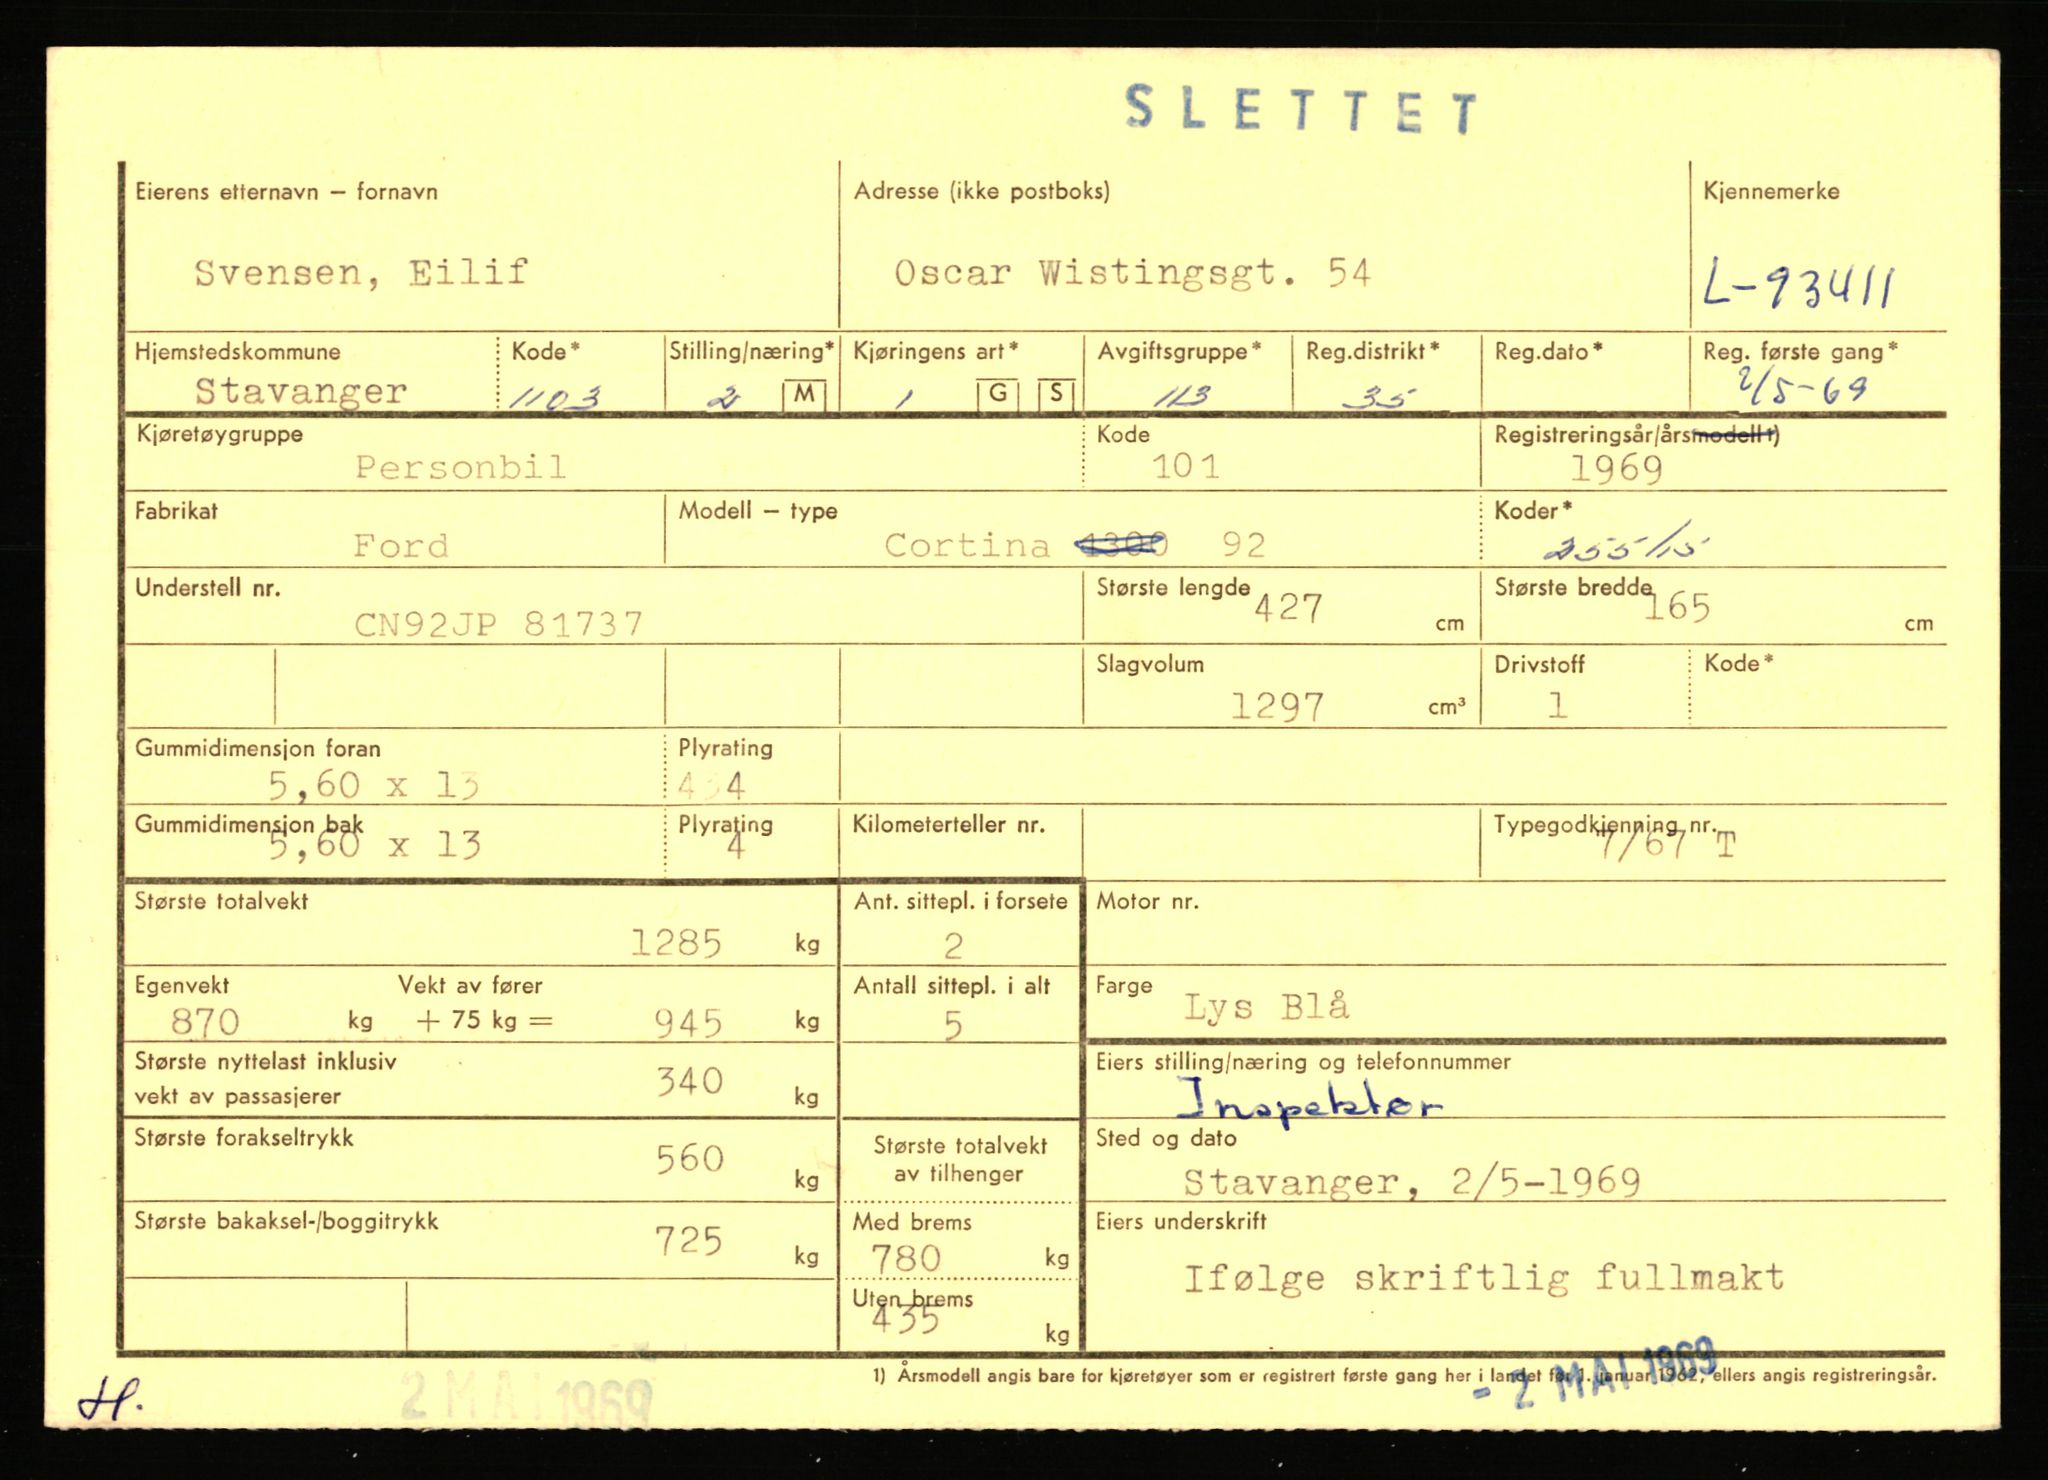 SLETTET
Eierens etternavn – fornavn
Adresse (ikke postboks)
Kjennemerke
Svensen, Eilif
Oscar Wistingsgt. 54
L-93411
Hjemstedskommune
Kode*
Stilling/næring*
Kjøringens art*
Avgiftsgruppe*
Reg.distrikt*
Reg.dato*
Reg. første gang*
Stavanger
1103
2 M
1 G S
113
35
2/5-69
Kjøretøygruppe
Kode
Registreringsår/årsmodell 1)
Personbil
101
1969
Fabrikat
Modell – type
Koder*
Ford
Cortina 1300 92
255/15
Understell nr.
Største lengde
Største bredde
CN92JP 81737
427 cm
165 cm
Slagvolum
Drivstoff
Kode*
1297 cm³
1
Gummidimensjon foran
Plyrating
5,60 x 13
434
Gummidimensjon bak
Plyrating
Kilometerteller nr.
Typegodkjenning nr.
5,60 x 13
4
7/67 T
Største totalvekt
Ant. sittepl. i forsete
Motor nr.
1285 kg
2
Egenvekt
Vekt av fører
Antall sittepl. i alt
Farge
870 kg + 75 kg = 945 kg
5
Lys Blå
Største nyttelast inklusiv
vekt av passasjerer
340 kg
Eiers stilling/næring og telefonnummer
Inspektør
Største forakseltrykk
560 kg
Største totalvekt
av tilhenger
Sted og dato
Stavanger, 2/5-1969
Største bakaksel-/boggitrykk
725 kg
Med brems
780 kg
Eiers underskrift
Ifølge skriftlig fullmakt
Uten brems
435 kg
1) Årsmodell angis bare for kjøretøyer som er registrert første gang her i landet før 1. januar 1962, ellers angis registreringsår.
H.
2 MAI 1969
- 2 MAI 1969